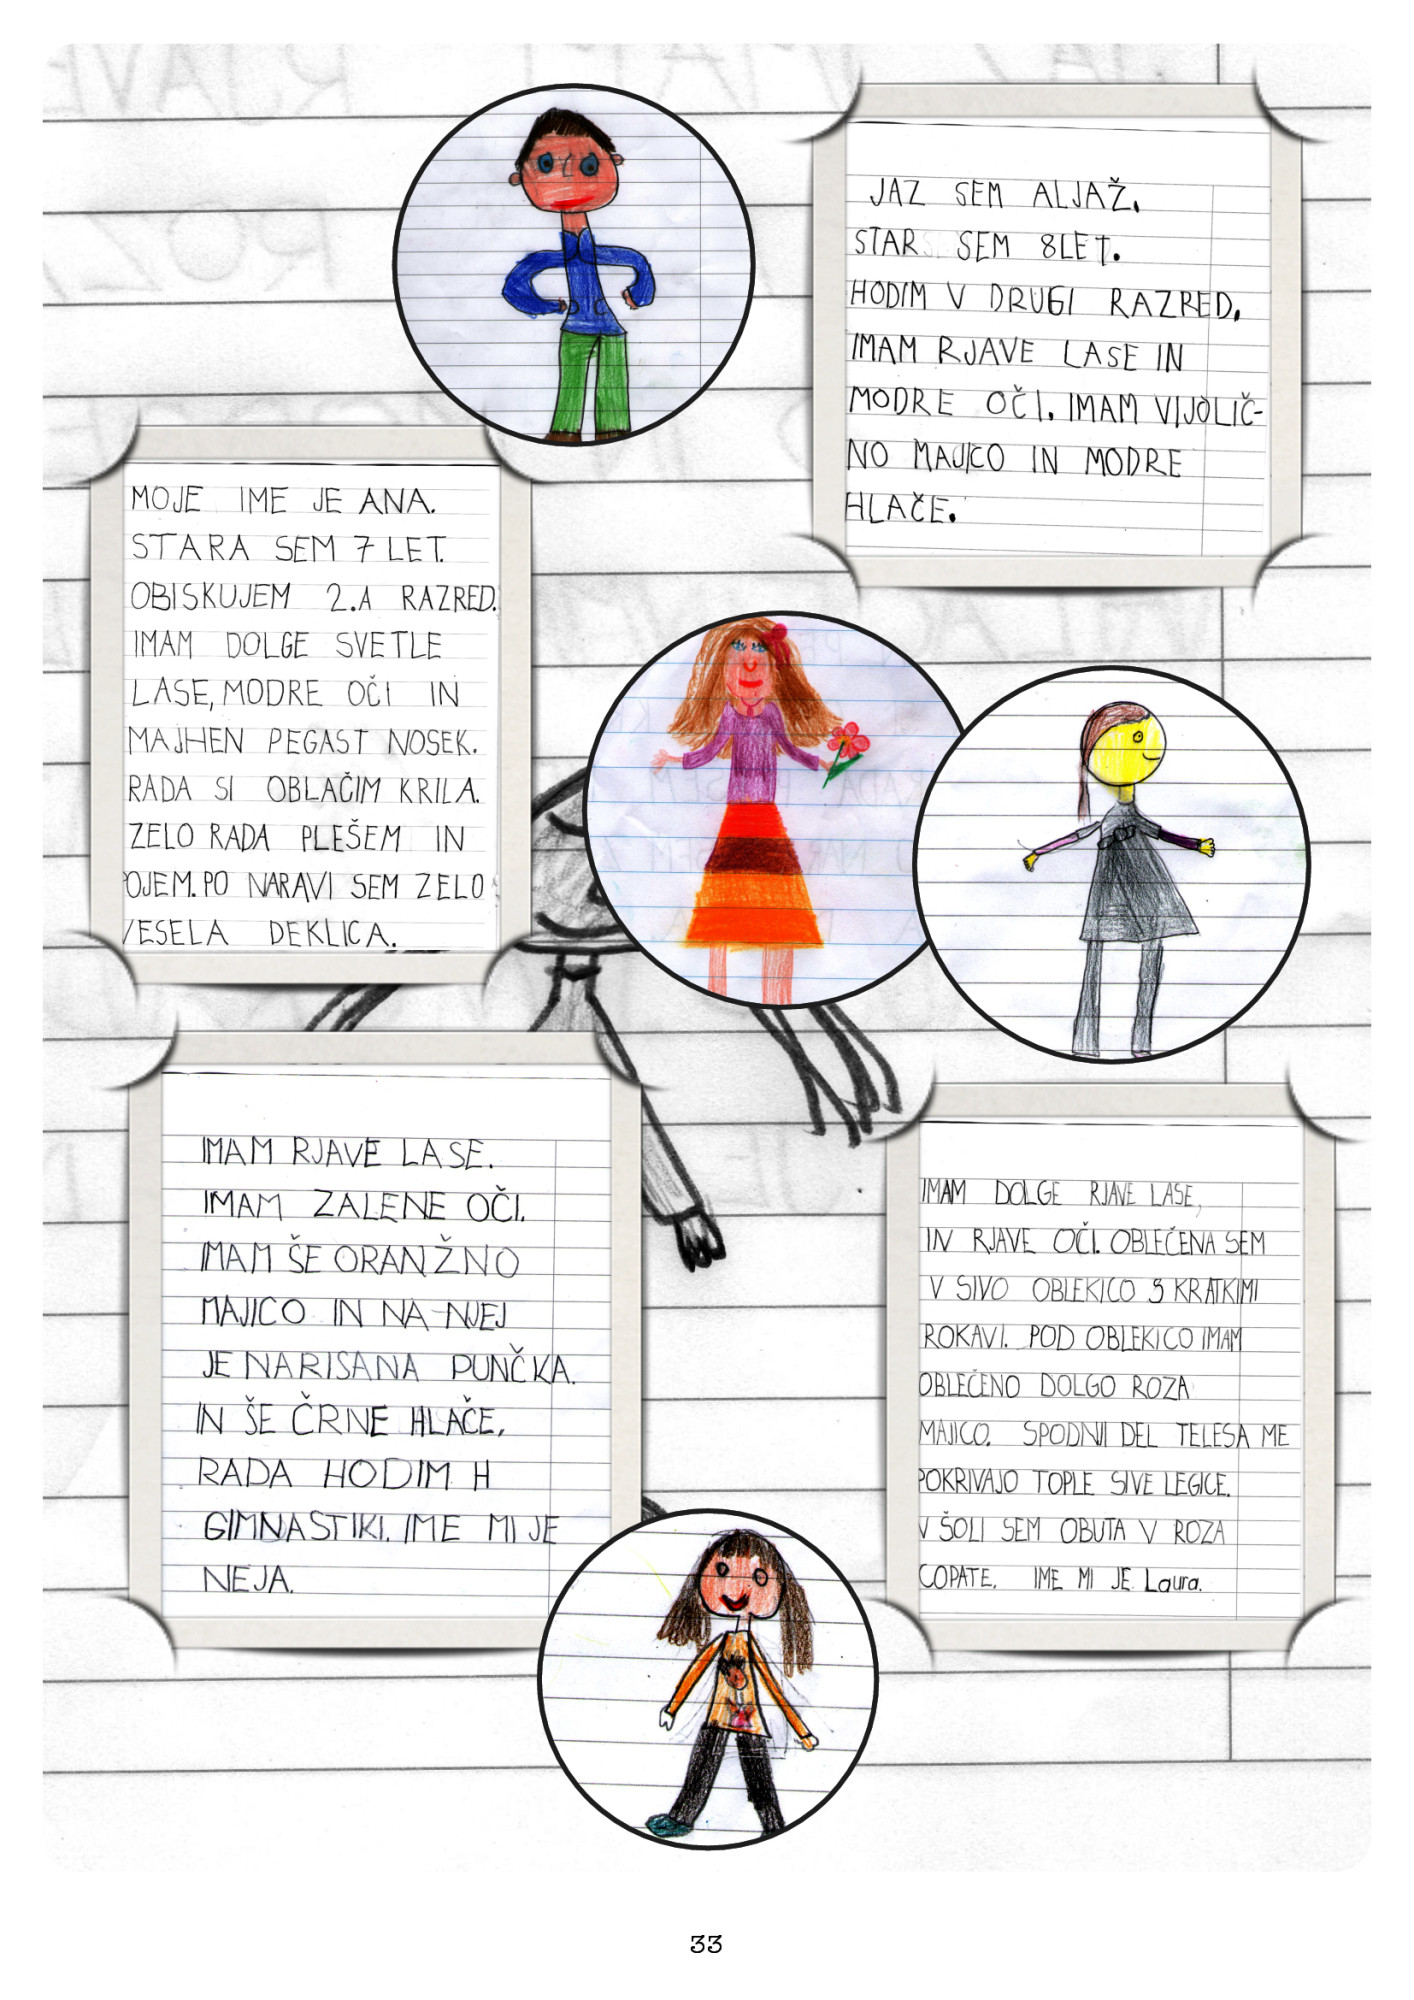 JAZ SEM ALJAŽ.
STAR SEM 8 LET.
HODIM V DRUGI RAZRED.
IMAM RJAVE LASE IN
MODRE OČI. IMAM VIJOLIČ-
NO MAJICO IN MODRE
HLAČE.
MOJE IME JE ANA.
STARA SEM 7 LET.
OBISKUJEM 2.A RAZRED.
IMAM DOLGE SVETLE
LASE, MODRE OČI IN
MAJHEN PEGAST NOSEK.
RADA SI OBLAČIM KRILA.
ZELO RADA PLEŠEM IN
POJEM. PO NARAVI SEM ZELO
VESELA DEKLICA.
IMAM RJAVE LASE.
IMAM ZALENE OČI.
IMAM ŠE ORANŽNO
MAJICO IN NA NJEJ
JE NARISANA PUNČKA.
IN ŠE ČRNE HLAČE.
RADA HODIM H
GIMNASTIKI. IME MI JE
NEJA.
IMAM DOLGE RJAVE LASE,
IN RJAVE OČI. OBLEČENA SEM
V SIVO OBLEKICO S KRATKIMI
ROKAVI. POD OBLEKICO IMAM
OBLEČENO DOLGO ROZA
MAJICO. SPODNJI DEL TELESA ME
POKRIVAJO TOPLE SIVE LEGICE.
V ŠOLI SEM OBUTA V ROZA
COPATE. IME MI JE Laura.
33